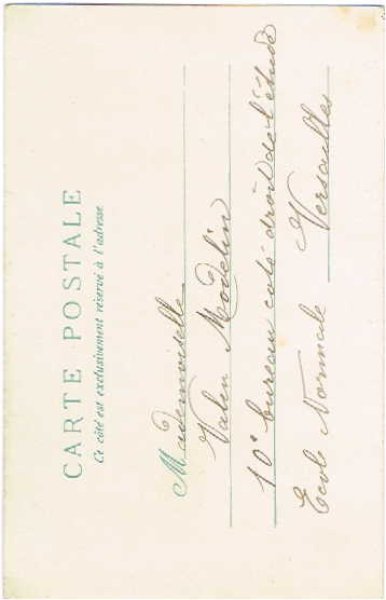 CARTE POSTALE
Ce côté est exclusivement réservé à l'adresse
Mademoiselle
Valin Modelin
10e bureau coté droit de l'étude
Ecole Normale Versailles